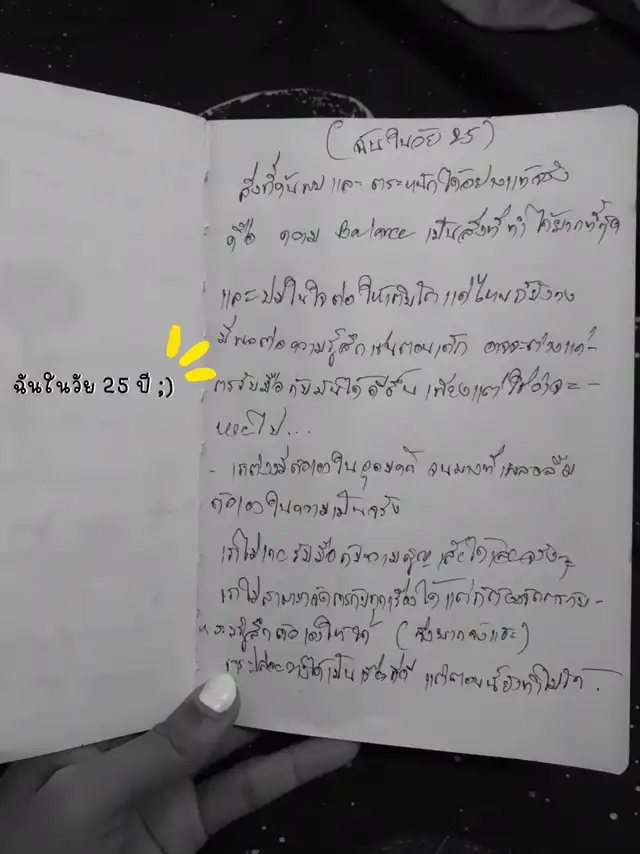 (ฉันในวัย 25)
สิ่งที่ค้นพบ และ ตระหนักได้อย่างแท้จริง
คือ ความ Balance เป็นสิ่งที่ทำได้ยากที่สุด
และปมในใจต่อให้เติบโตแค่ไหนก็ยังคง
มีผลต่อความรู้สึกเช่นตอนเด็ก อาจจะต่างแค่-
ฉันในวัย 25 ปี ;)
การรับมือกับมันได้ดีขึ้น เพียงแค่
ไป...
- เราต่างมีตัวเองในอุดมคติ จนบางทีเผลอลืม
ตัวเองในความเป็นจริง
เราไม่เคยรับมือกับความสูญเสียได้เลยจริงๆ
เราไม่สามารถจัดการกับทุกเรื่องได้ แต่ก็ต้องจัดการกับ-
ความรู้สึกตัวเองให้ได้ (ซึ่งยากจังแฮะ)
การปล่อยวางได้เป็นเรื่องที่ดี แต่ตอนนี้ยังทำไม่ได้.